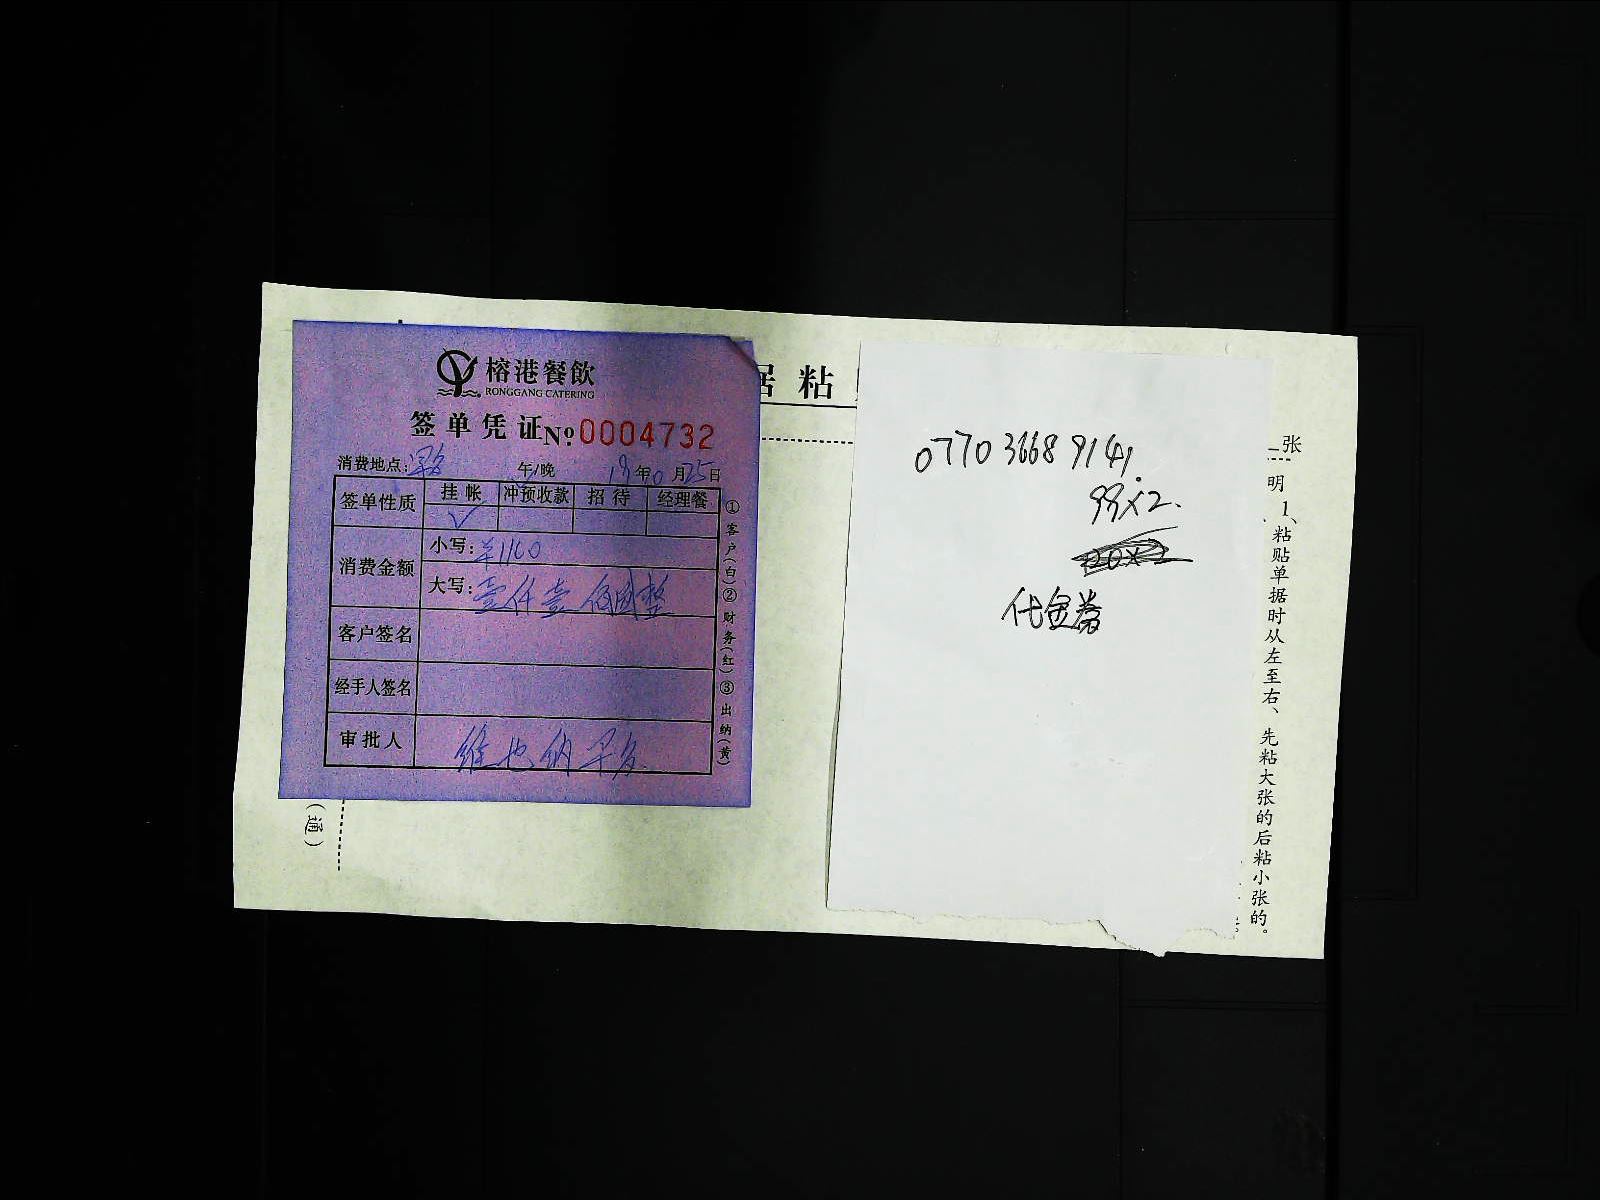 榕港餐飲
RONGGANG CATERING
签单凭证 No 0004732
消费地点: 午/晚 年 月25日
签单性质 挂帐 冲预收款 招待 经理餐
√
消费金额 小写:¥1100
大写:壹仟壹佰圆整
客户签名
经手人签名
审批人 维也纳早
①客户(白)②财务(红)③出纳(黄)
(通)
据粘
0770 3668 9141
99×2.
代金券
张
明 1、粘贴单据时从左至右、先粘大张的后粘小张的。